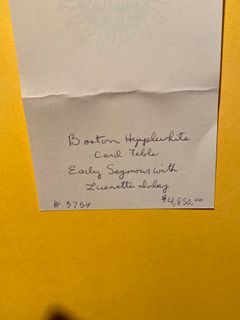 Boston Hepplewhite
Card Table
Early Seymour with
Lunette Inlay
# 3754 $4,850.00